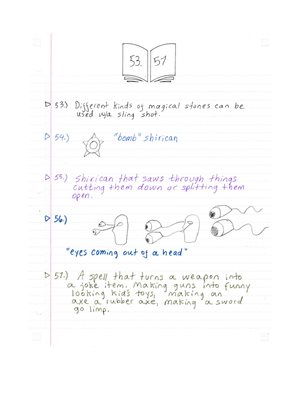 53. 57
53.) Different kinds of magical stones can be
used w/a sling shot.
54.) "bomb" shirican
55.) Shirican that saws through things
cutting them down or splitting them
open.
56.)
"eyes coming out of a head"
57.) A spell that turns a weapon into
a joke item. Making guns into funny
looking kid's toys, making an
axe a rubber axe, making a sword
go limp.